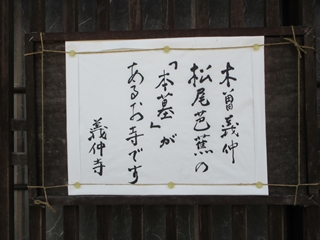 木曽義仲
松尾芭蕉の
「本墓」が
あるお寺です
義仲寺